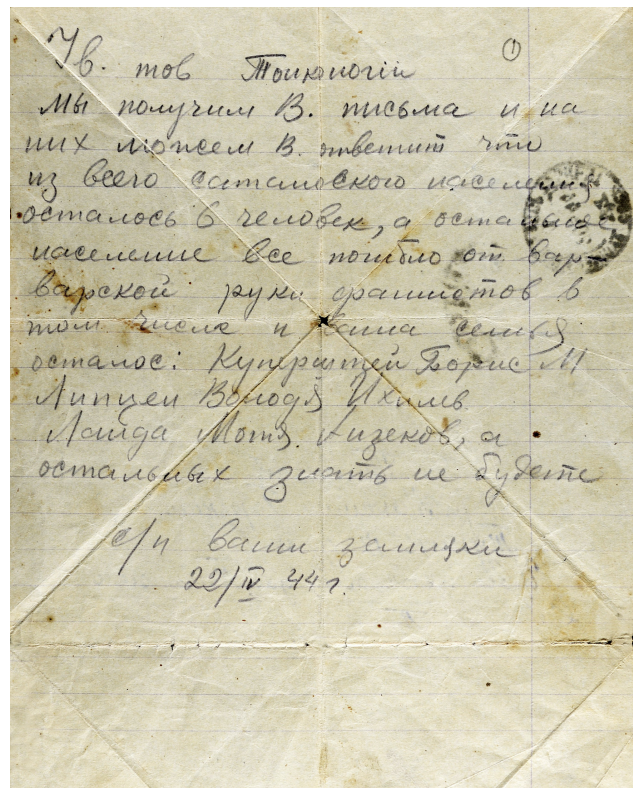 ①
Ув. тов
Мы получим В. письма и на
них можем В. ответит что
из всего саталовского населения
осталось 6 человек, а остальное
население все погибло от вар-
варской руки фашистов в
том числе и ваша семья
осталос: Куперштей Борис М
Липцен Володя Ихилев
Лайда Мотя, а
остальных знать не будете
с/п ваши земляки
22/IV 44 г.